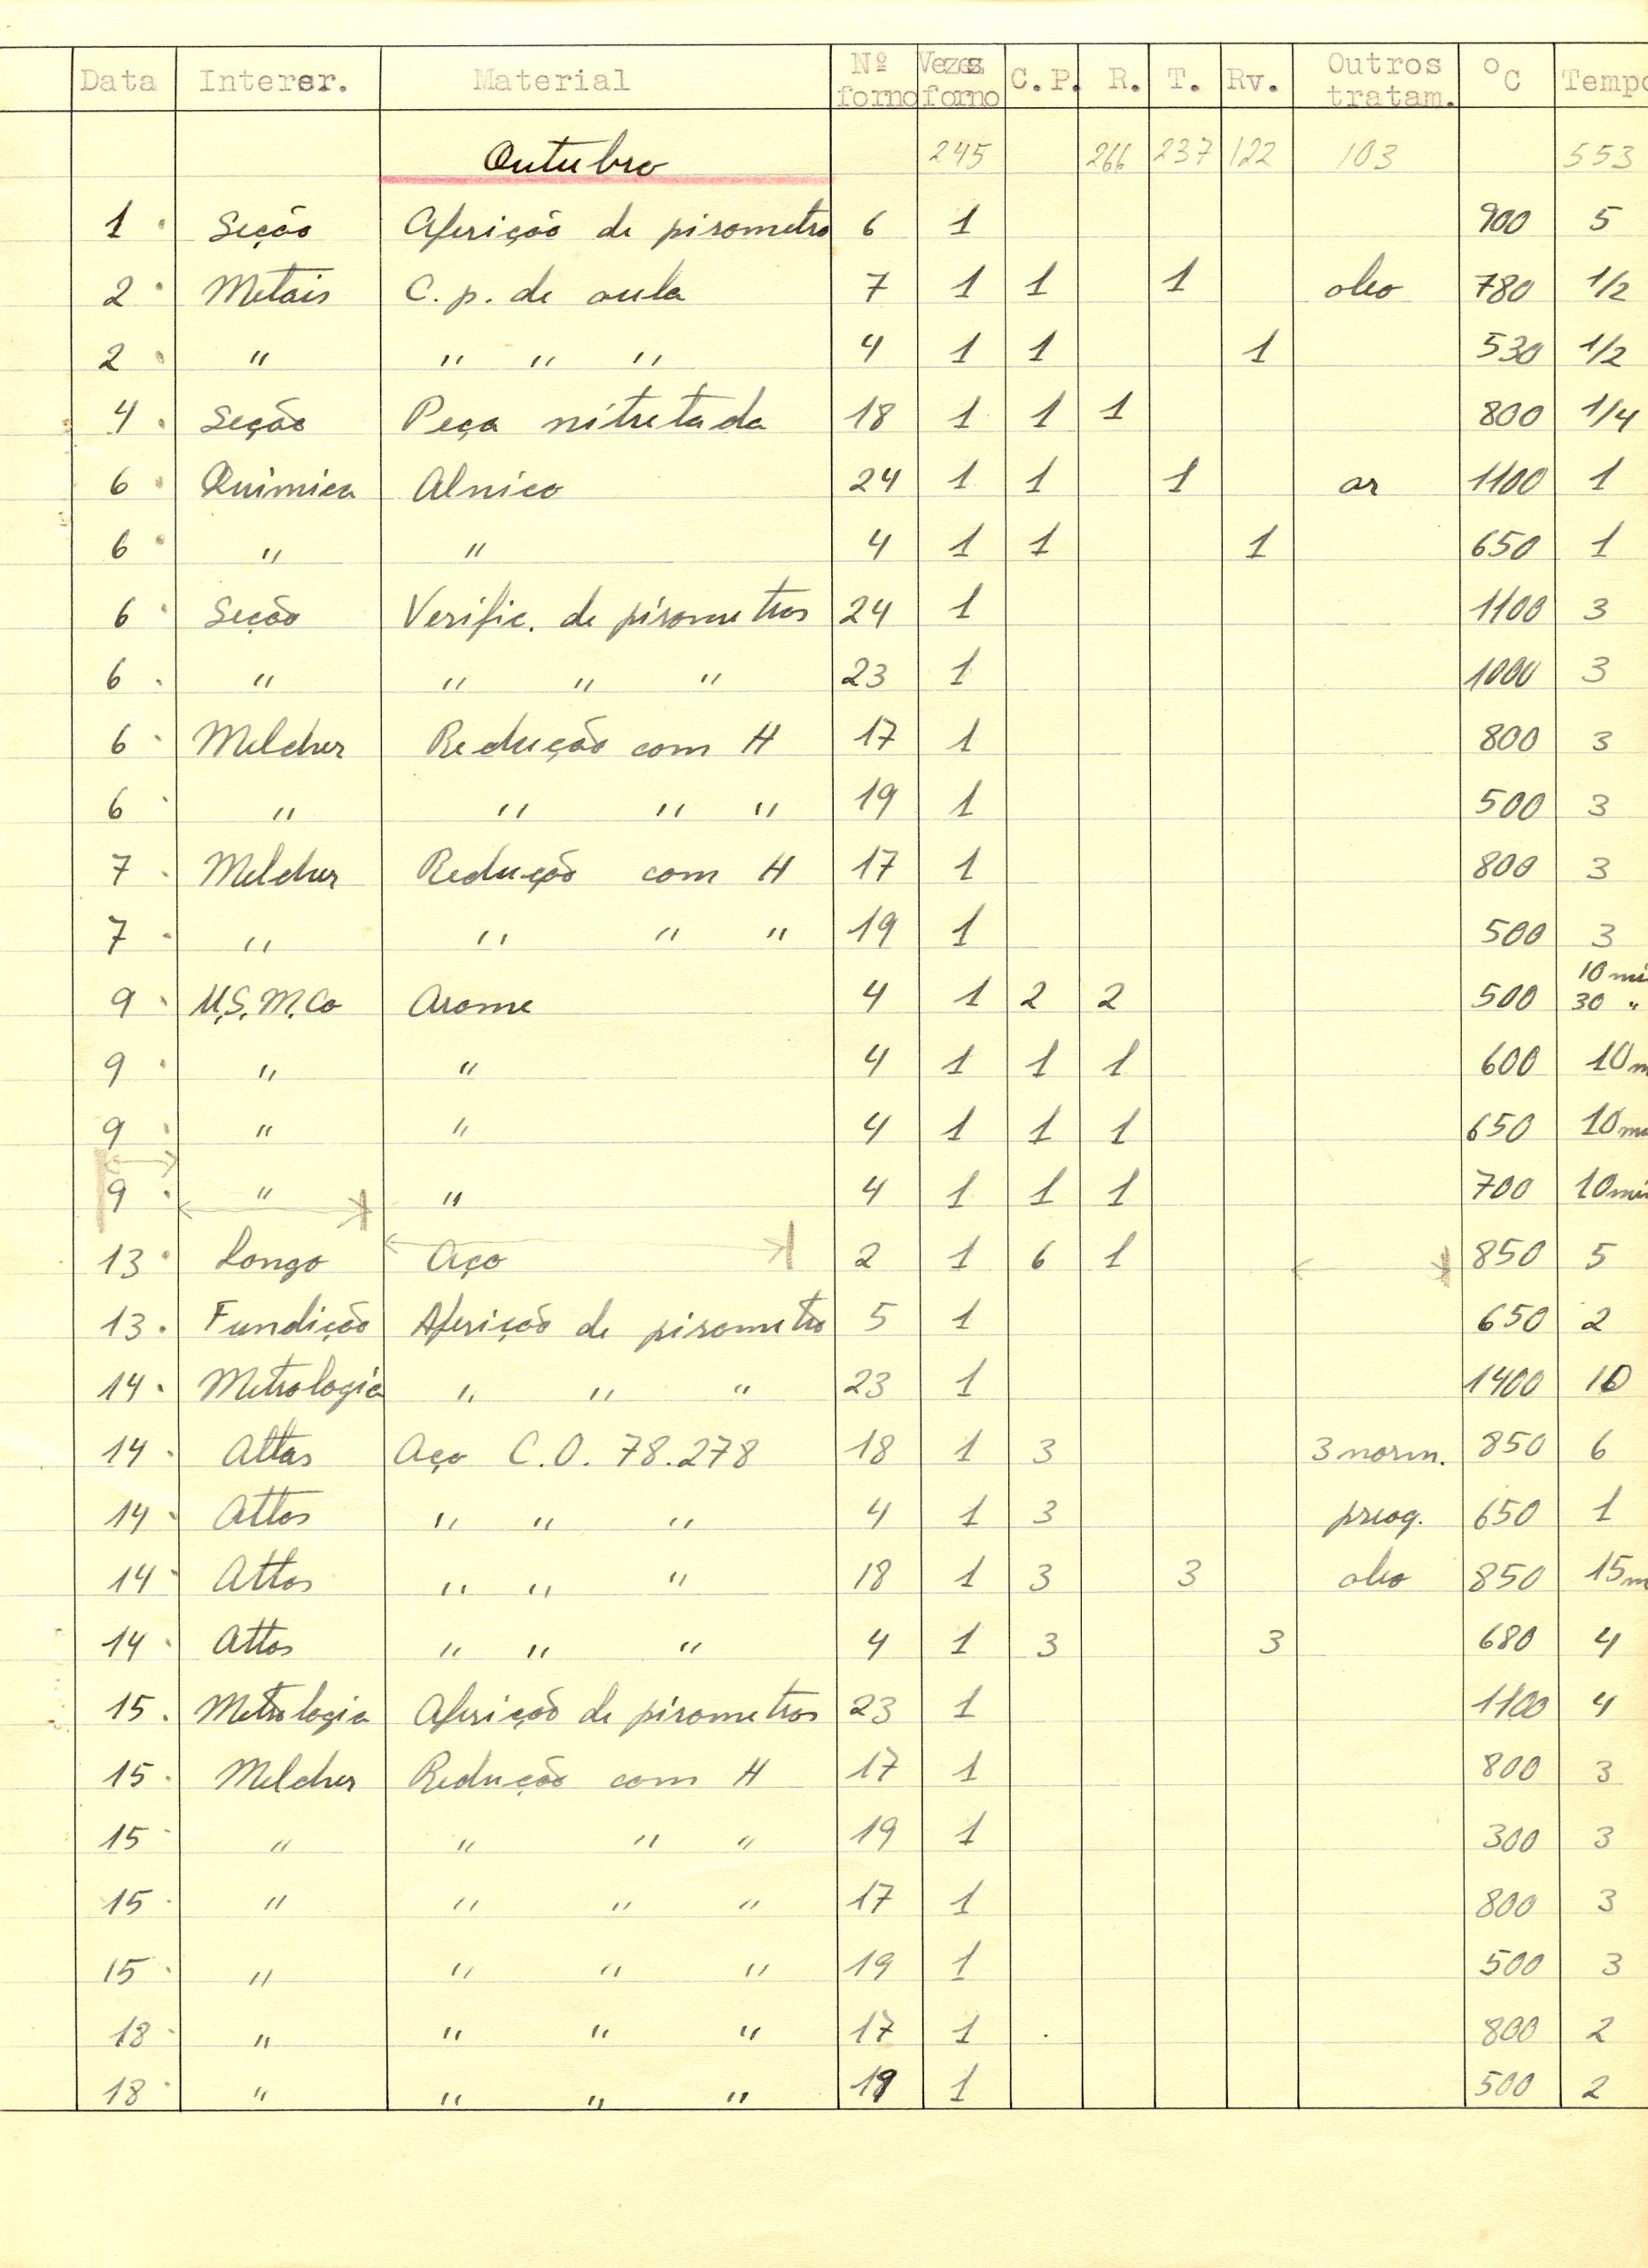 Data Interer. Material Nº forno Vezes forno C.P. R. T. Rv. Outros tratam. ºC Tempo
Outubro 245 266 237 122 103 553
1 Seção Aferição de pirometro 6 1 900 5
2 Metais C. p. de aula 7 1 1 1 oleo 780 1/2
2 " " " " 4 1 1 1 530 1/2
4 Seção Peça nitretada 18 1 1 1 800 1/4
6 Quimica Alnico 24 1 1 1 ar 1100 1
6 " " 4 1 1 1 650 1
6 Seção Verific. de pirometros 24 1 1100 3
6 " " " " 23 1 1000 3
6 Melcher Redução com H 17 1 800 3
6 " " " " 19 1 500 3
7 Melcher Redução com H 17 1 800 3
7 " " " " 19 1 500 3
9 U.S.M.Co Arame 4 1 2 2 500 10 mi 30 "
9 " " 4 1 1 1 600 10 m
9 " " 4 1 1 1 650 10 m
9 " " 4 1 1 1 700 10 mi
13 Longo Aço 2 1 6 1 850 5
13 Fundição Aferição de pirometro 5 1 650 2
14 Metrologia " " " 23 1 1400 10
14 Attos Aço C.O. 78.278 18 1 3 3 norm. 850 6
14 Attos " " " 4 1 3 preaq. 650 1
14 Attos " " " 18 1 3 3 oleo 850 15 m
14 Attos " " " 4 1 3 3 680 4
15 Metrologia Aferição de pirometros 23 1 1100 4
15 Melcher Redução com H 17 1 800 3
15 " " " " 19 1 300 3
15 " " " " 17 1 800 3
15 " " " " 19 1 500 3
18 " " " " 17 1 800 2
18 " " " " 19 1 500 2